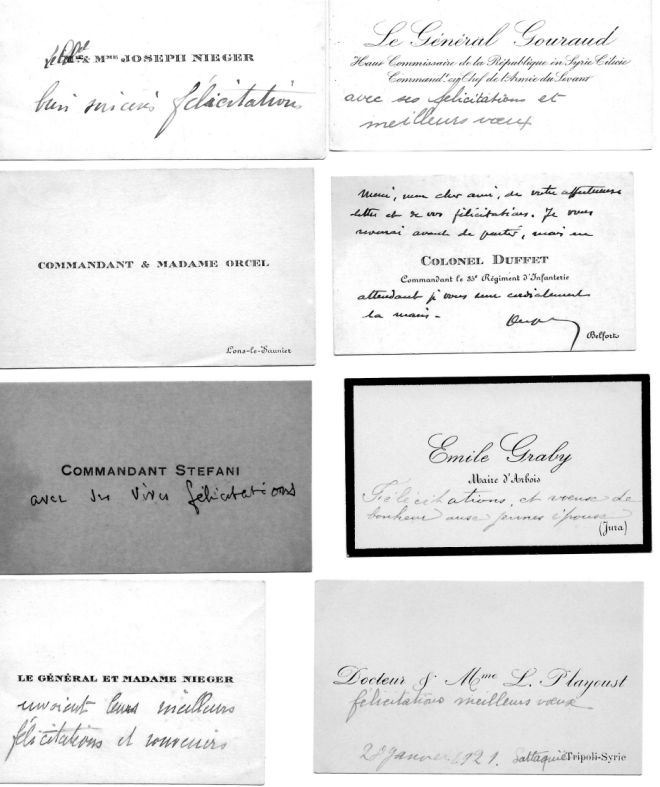 & Mᴹᴱ JOSEPH NIEGER
bien sincères félicitations
Le Général Gouraud
Haut Commissaire de la République en Syrie Cilicie
Commandᵗ en Chef de l'Armée du Levant
avec ses félicitations et
meilleurs vœux
COMMANDANT & MADAME ORCEL
Lons-le-Saunier
Merci, mon cher ami, de votre affectueuse
lettre et de vos félicitations. Je vous
reverrai avant de partir, mais en
COLONEL DUFFET
Commandant le 35ᵉ Régiment d'Infanterie
attendant je vous serre cordialement
la main -
Belfort
COMMANDANT STEFANI
avec ses vives félicitations
Emile Graby
Maire d'Arbois
Félicitations et vœux de
bonheur aux jeunes époux
(Jura)
LE GÉNÉRAL ET MADAME NIEGER
envoient leurs meilleurs
félicitations et souvenirs
Docteur & Mᵐᵉ L. Playoust
félicitations meilleurs vœux
28 janvier 1921. Lattaquié Tripoli-Syrie